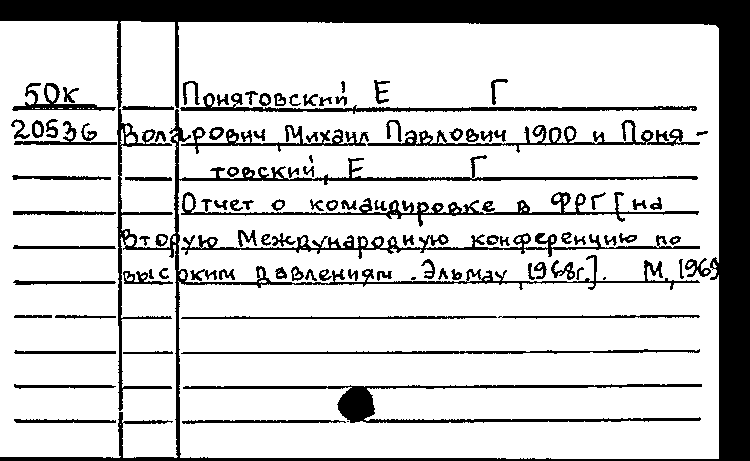 50к Понятовский, Е Г
20536 Воларович, Михаил Павлович, 1900 и Поня-
товский, Е Г
Отчет о командировке в ФРГ [на
Вторую Международную конференцию по
высоким давлениям. Эльмау, 1968г.]. М., 1969